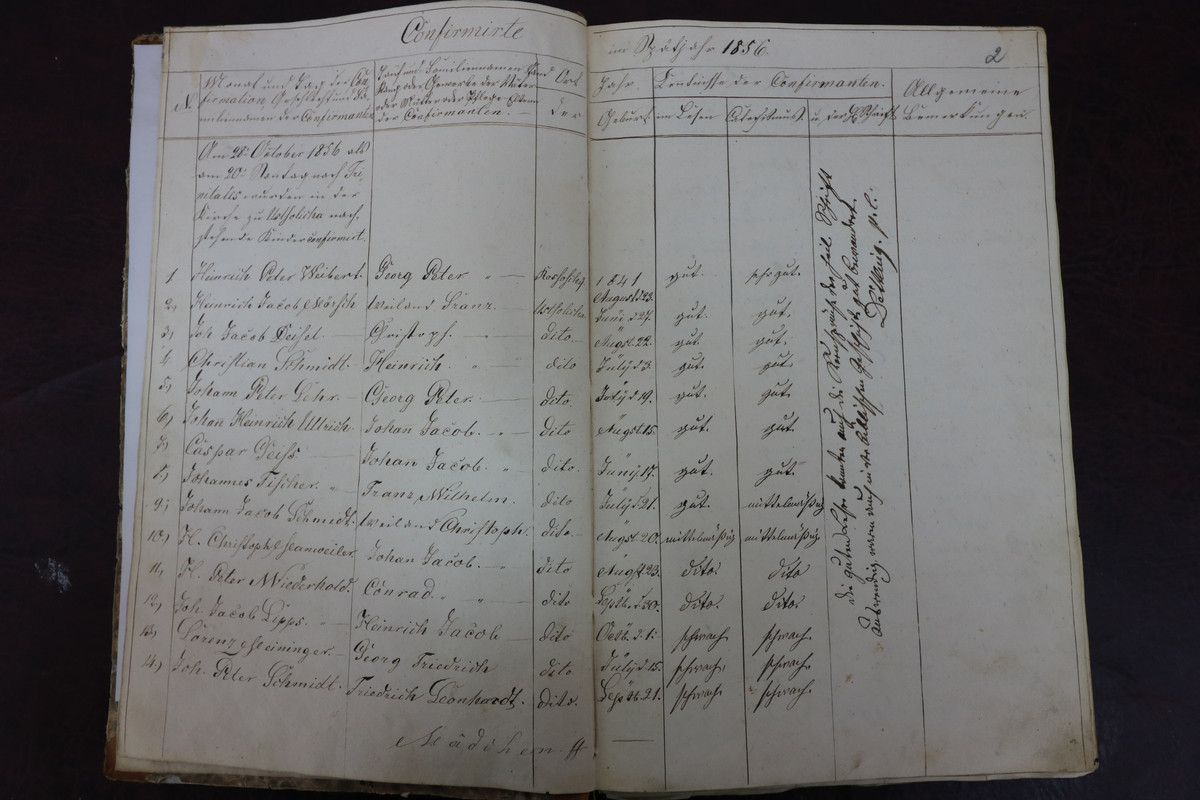 Confirmirte
im Spätjahr 1856.
2
N.
Monat und Tag der Con
firmation, Geschlecht und Fa
miliennamen der Confirmanten
Tauf und Familiennamen Stand
Rang oder Gewerbe der Väter
oder Mütter oder Pflege Eltern
der Confirmanten.
Ort
der
Jahr
Geburt
Kentnisse der Confirmanten.
im Lesen
Catechismus
u. der H. Schrift
Allgemeine
Bemerkungen.
Am 28n October 1856 als
am 20n Sontag nach Tri
nitatis wurden in der
Kirche zu Ustsolicha nach
stehende Kinder confirmirt.
1 Heinrich Peter Weibert. Georg Peter 1841 August d 23. gut. sehr gut.
2, Heinrich Jacob weiland Franz. Ustsolicha Juni d 27. gut. gut.
3, Joh. Jacob Deisel. Christoph. dito. August 22. gut gut.
4, Christian Schmidt. Heinrich. dito July d 3. gut gut.
5, Johann Peter Lehr. Georg Peter. dito. July d 19. gut. gut.
6, Johan Heinrich Ullrich. Johan Jacob. dito August 15. gut. gut.
7, Caspar Geiss Johan Jacob. dito. Juny 17. gut. gut.
8, Johannes Fischer. Franz Wilhelm. dito July d 21. gut. mittelmäßig
9, Johann Jacob Schmidt. weiland Christoph. dito August 20. mittelmäßig mittelmäßig
10, H. Christoph Johan Jacob. dito August 23. dito. dito
11, H. Peter Wiederhold. Conrad. dito Septbr. d 30. dito. dito.
12, Joh. Jacob Lipps. Heinrich Jacob dito Octb. d. 1. schwach schwach.
13, Lorenz Georg Friedrich dito. July d 15. schwach, schwach.
14, Joh. Peter Schmidt. Friedrich Leonhardt. dito. Septb 21. schwach schwach.
Mädchen
die guten Leser konten auch die Kernsprüche der heil Schrift
auswendig waren auch in der biblischen Geschichte gut bewandert.